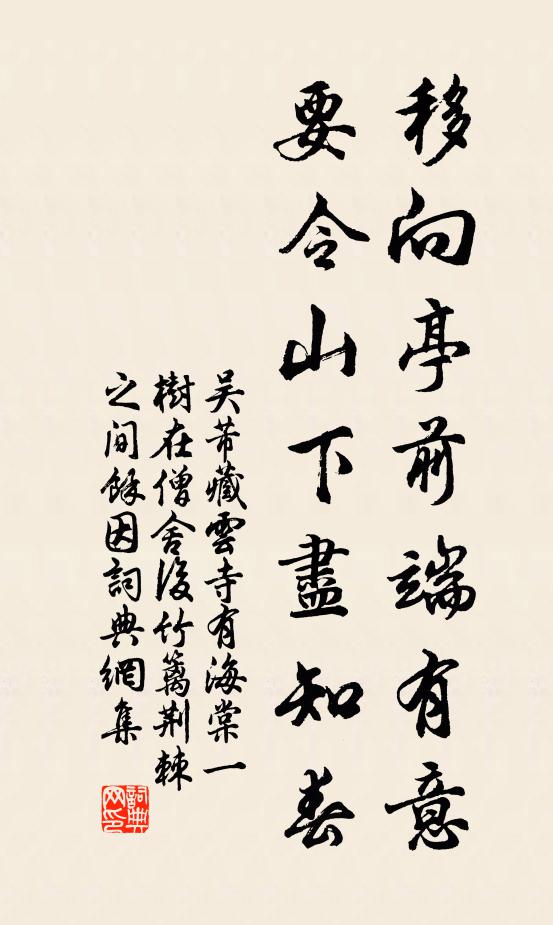 移向亭前端有意
要令山下盡知春
吴芾藏雲寺有海棠一
樹在僧舍後竹籬荆棘
之间餘因詞典網集
詞典
网印